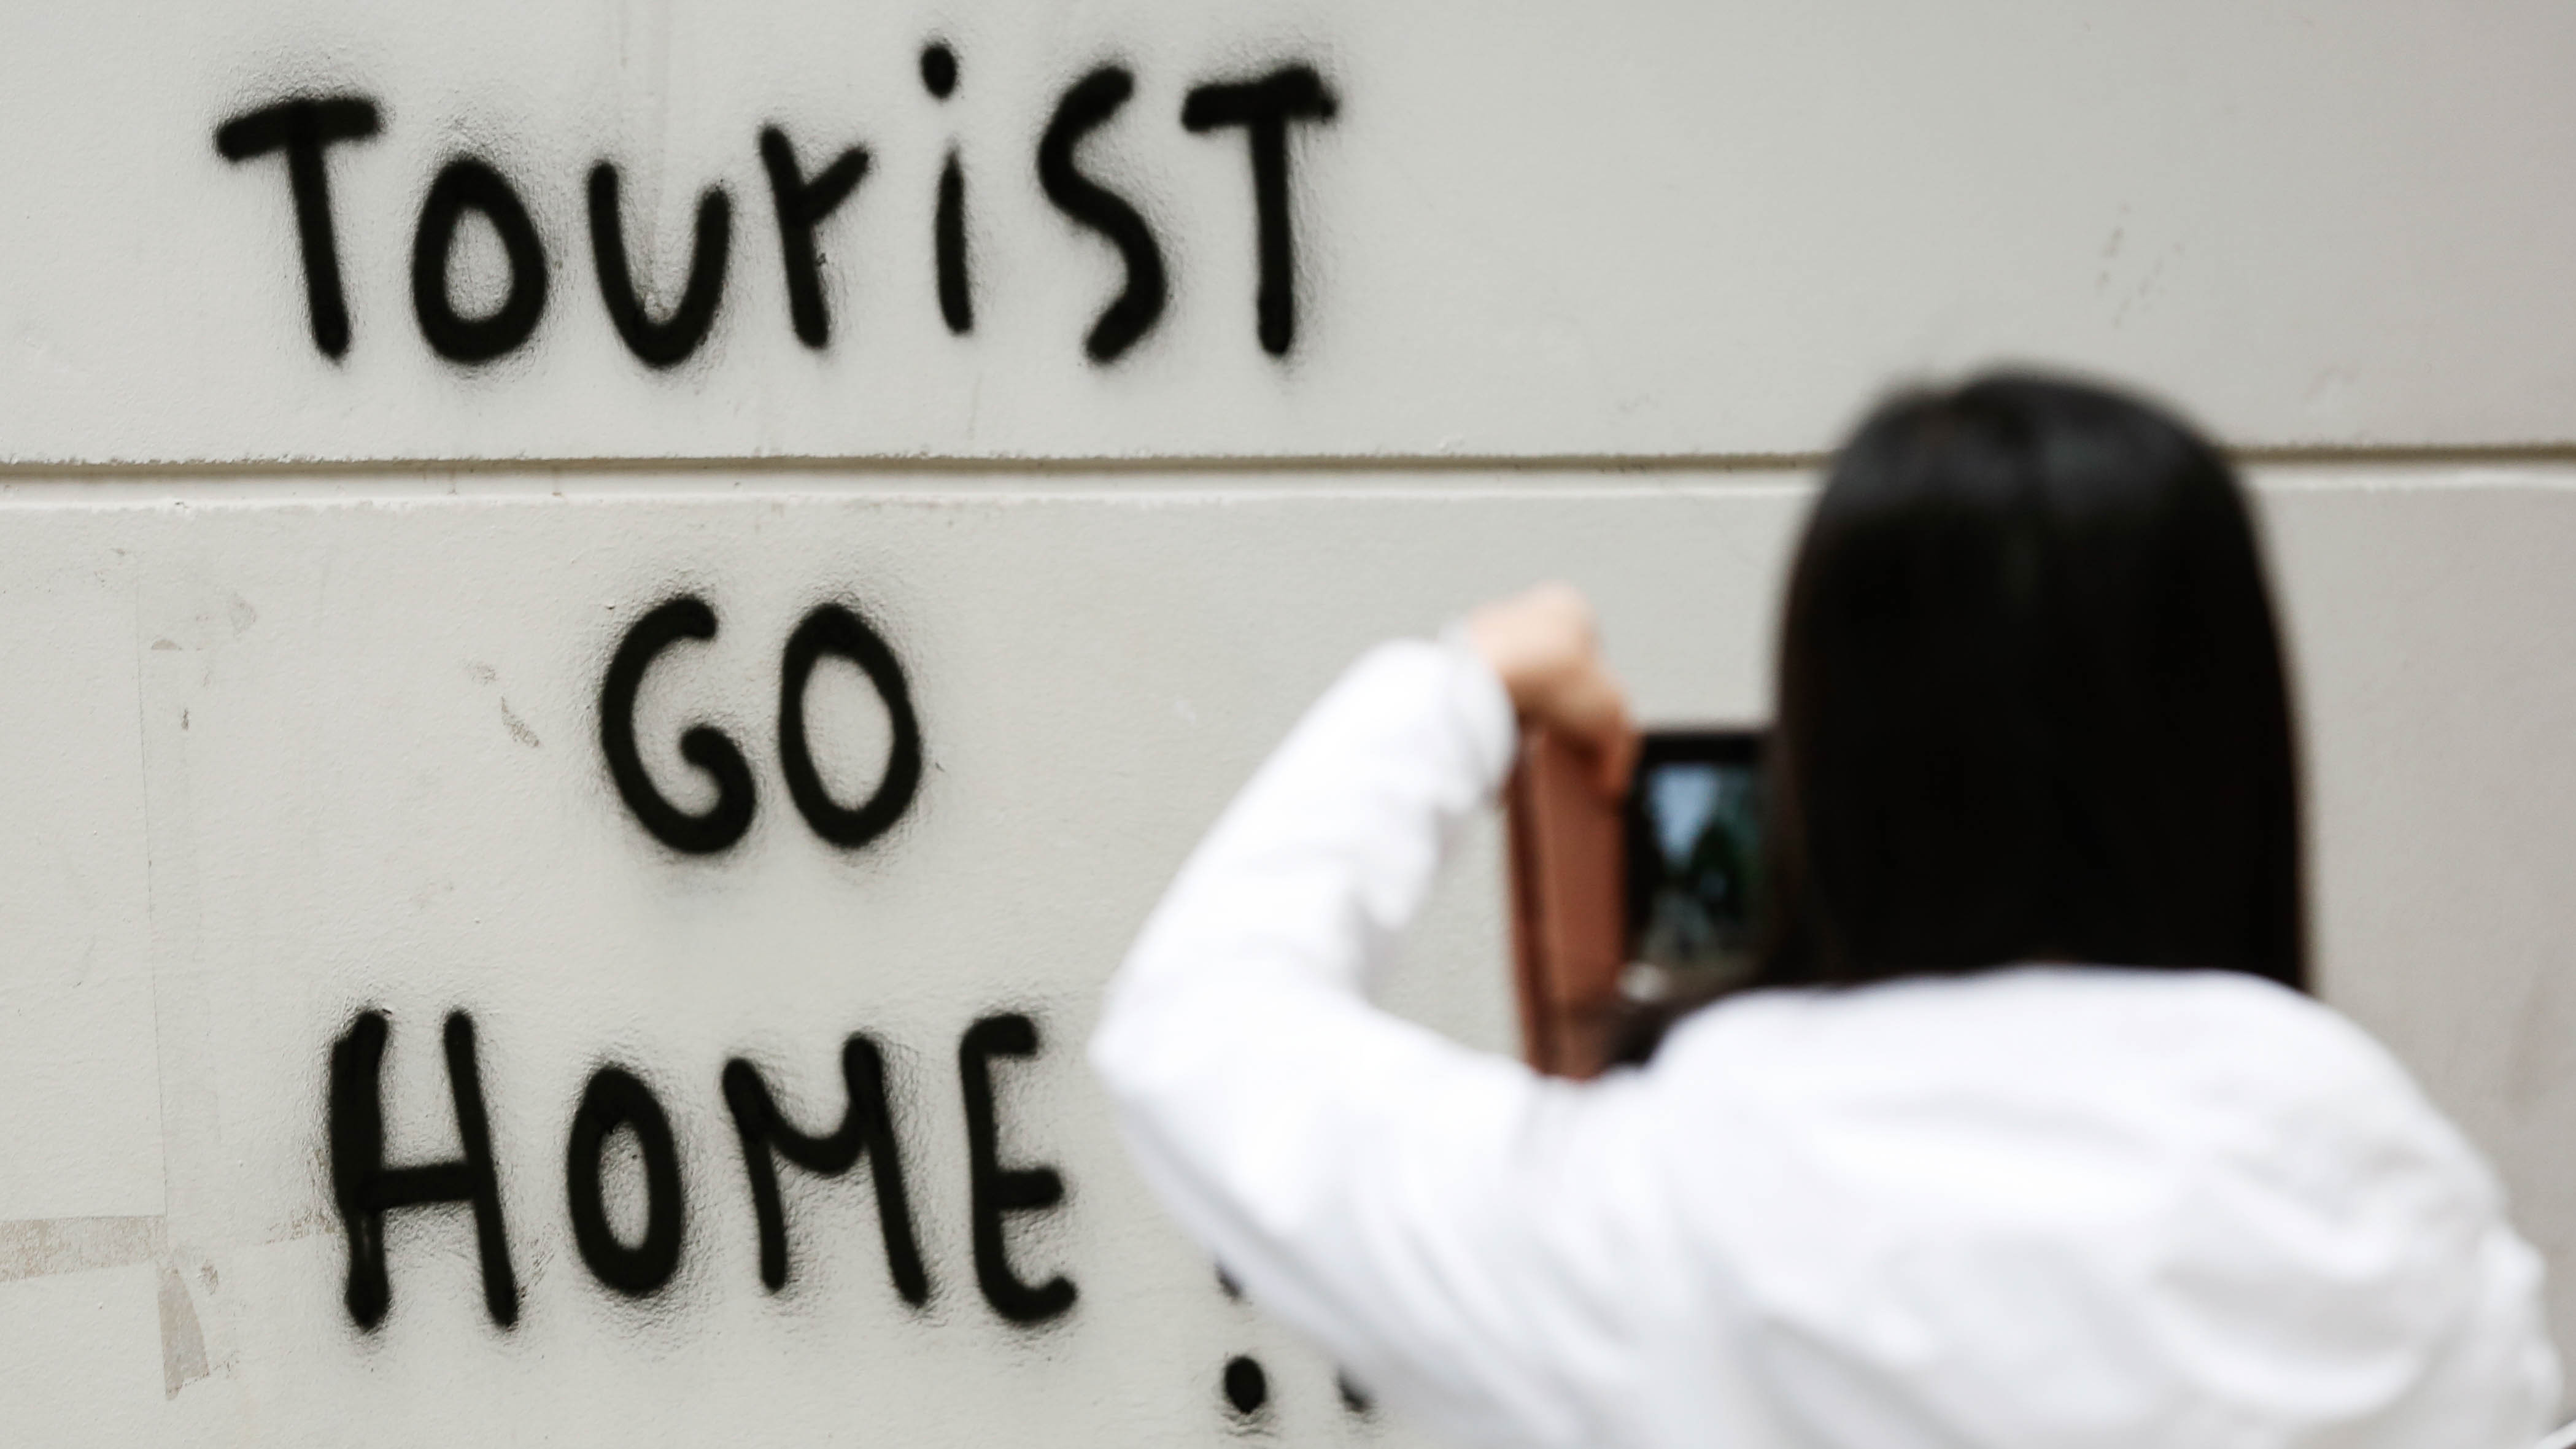 TouriST
GO
HOME !!